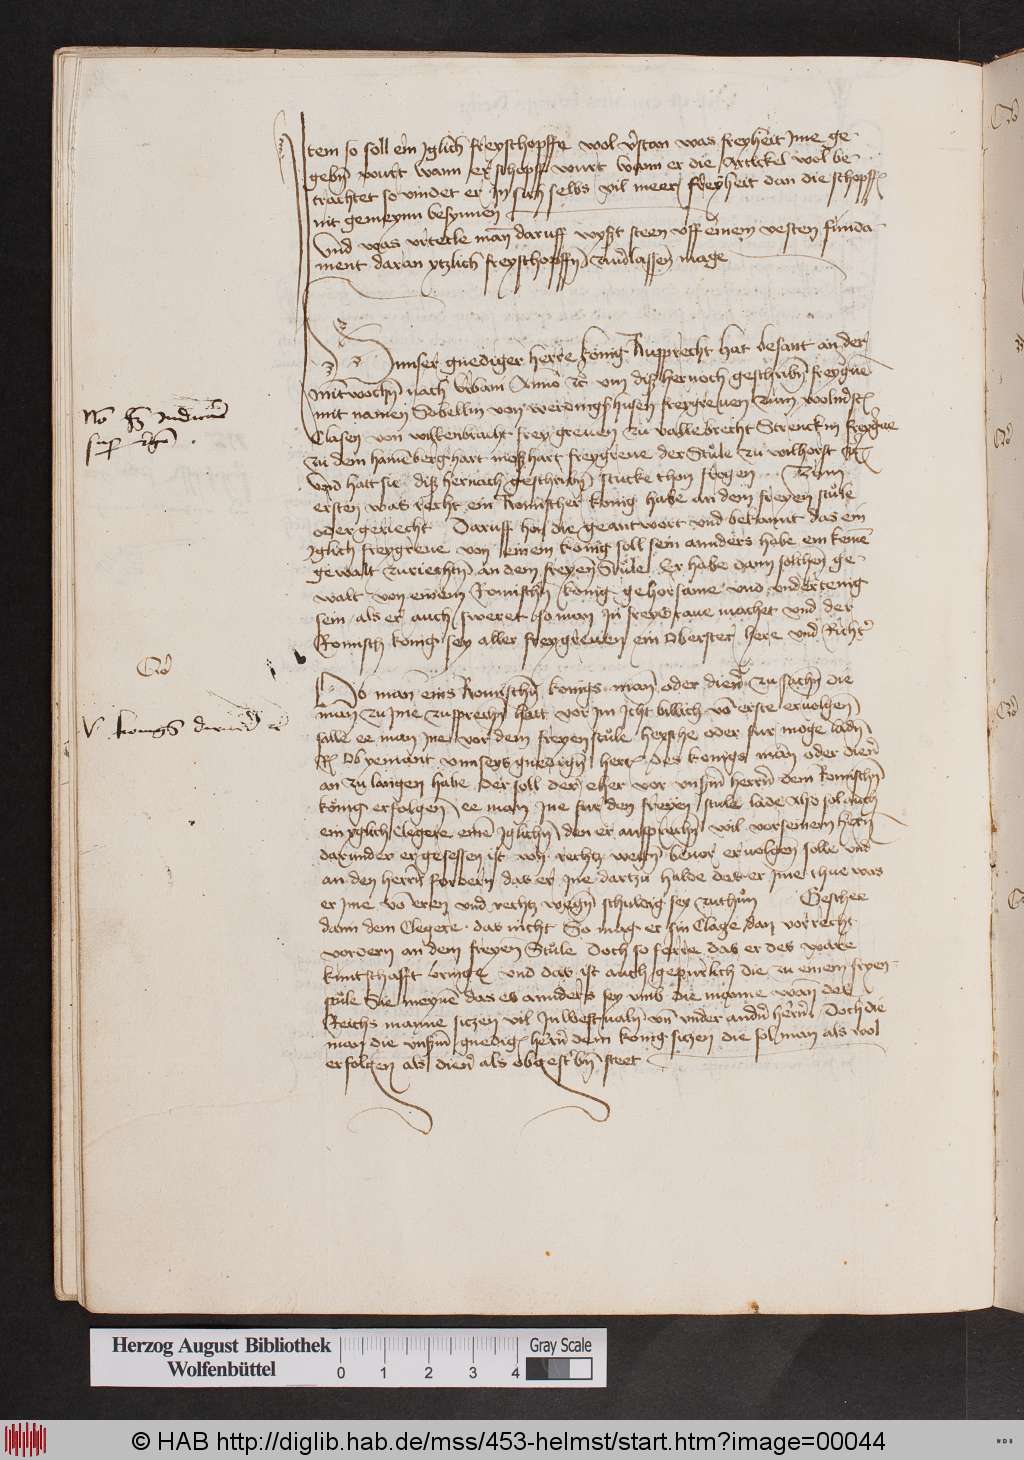 Item so soll ein Iglich freyschopffe wol v̓ston was freyheit Ime ge-
gebn̄ wurt wann er schopff wurt wann er die Artickel wol be-
trachtet so vindet er In sich selbs vil meer freyheit dan die schopff
nit gemeynn besynnen
Vnd was vrteile man daruff wyßt steen vff einem vesten funda-
ment daran ytzlich freyschopffn̄ verlassen mage
Vnnser gnediger herre konig Rupprecht hat besant an der
mitwochn̄ nach Vrbani Anno ꝛc vm diß hernoch geschribn̄ freygreuē
mit namen Gobelin von werdingßhusen freygreuen zum volmⷭst
Clasen von wilkenbracht freygreuen zu vallebrecht Strenckin freygreue
zu dem hamē berghart moßhart freygreue der Stůle zu wilhorst ꝛc
Vnd hatt sie diß hernach geschribn̄ stucke thon frogen Zum
ersten was recht ein Romischer konig habe an dem freyen stůle
oder geriecht Daruff hon die geantwort vnd bekannt das ein
Iglich freygreue von einem konig soll sein annders habe ein keinē
gewalt zurichtn̄ an dem freyen Stůle Er habe dann solchen ge-
walt von einem Romischn̄ konig gehorsame vnd vndertenig
sein als er auch sweret so man In freygraue machet vnd der
Romisch konig sey aller freygreuen ein Oberster here vnd Richter
Ob man eins Romischn̄ konigs man oder dien̓ zu sachn̄ die
man zu Ime zusprechn̄ hett vor Im Icht billich vō erste eruolgen
salle ee man Ine vor dem freyen stůle heysche oder fur moge ladn̄
R Ob yemant vnnsers gnedign̄ hern des konigs man oder dien̓
an zu langen habe der soll der eher vor vnsern̄ herrn̄ dem Romischn̄
konig erfolgen ee man Ine fur den freyen stule lade Also sol auch
ein yglich Clegere einē Iglichn̄ den er ansprechn̄ wil vor seinem herrn̄
darunder er gesessen ist von rechtz wegn̄ beuor eruolgen solle vnd
an den herrn̄ fordern das er Ine dartzu halde das er Ime thue was
er Ime vō eren vnd rechtz wegn̄ schuldig sey zuthun Geschee
dann dem Clegere das nicht So mag er sin Clage dan vor recht
vordern an dem freyen Stůle Doch so ferre das er des ware
kuntschafft bringe vnd das ist auch gepurlich die zu einem fryen
stůle Sie meynē das es annders sey vmb die manne wan des
Reichs manne sitzen vil In westualn̄ vn̄ vnder andn̄ herrn̄ Doch die
man die vnsern̄ gnedig herrn̄ dem konig sitzen die sol man als wol
erfolgen als dien̓ als obgescrbn̄ steet
Herzog August Bibliothek
Wolfenbüttel
0 1 2 3 4
Gray Scale
© HAB http://diglib.hab.de/mss/453-helmst/start.htm?image=00044